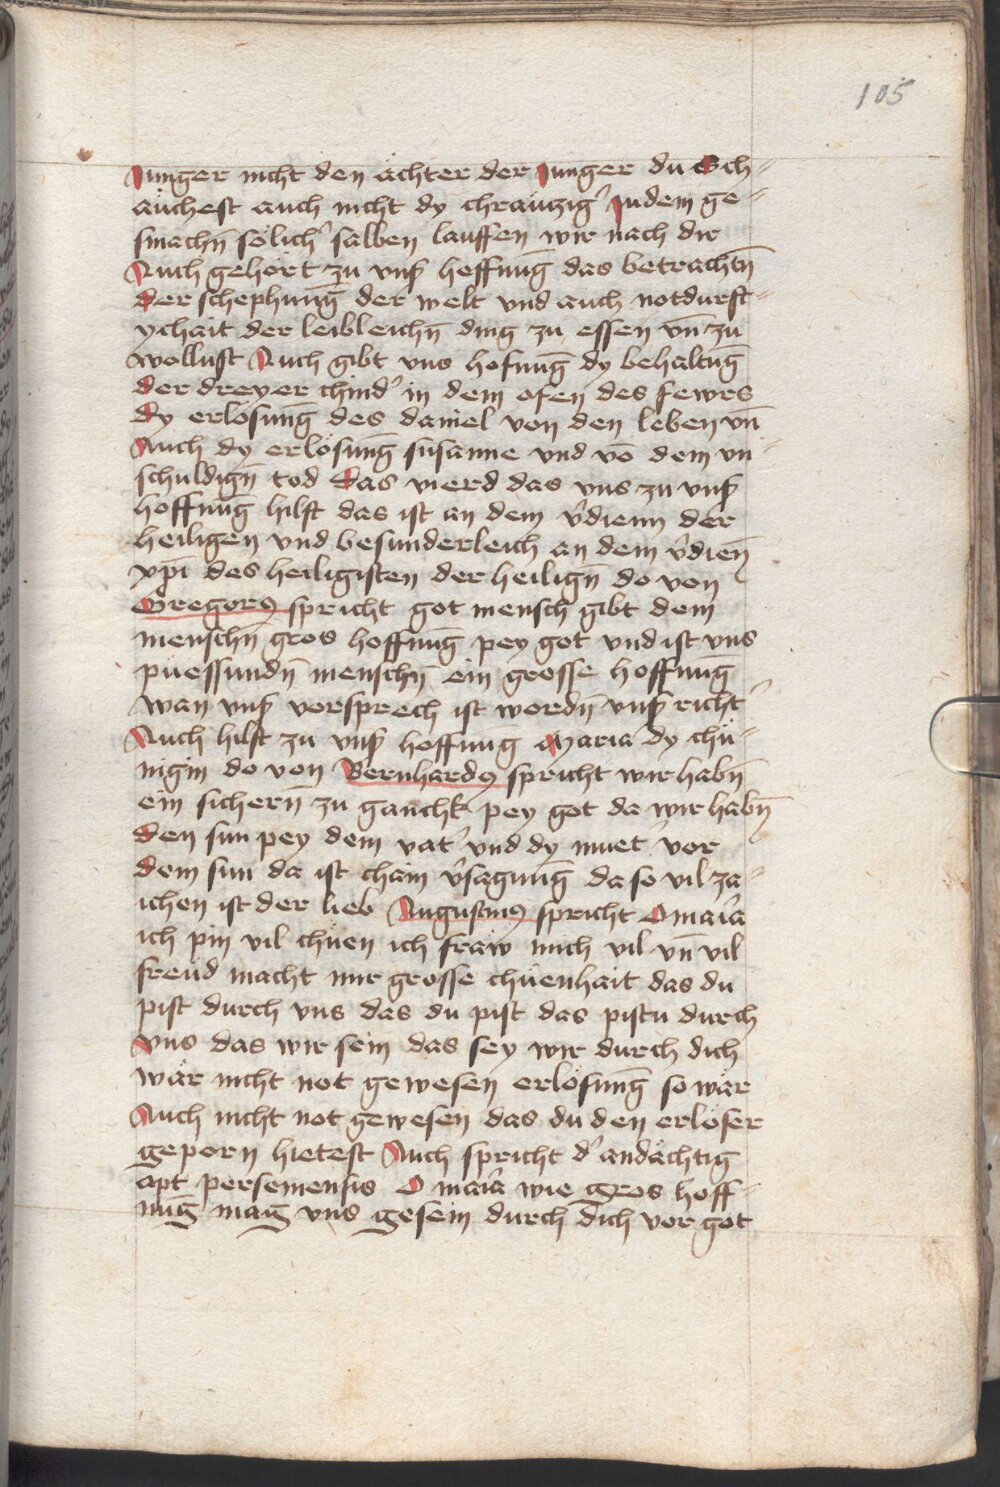 105
Junger nicht den ächter der Junger du Sch-
äuchest auch nicht dy chräuczig' Jn dem ge-
smachn̄ sölich' salben lauffen wir nach dir
Auch gehört zu vnsß hoffnūg das betrachtn̄
der schephung der welt vnd auch notdurft-
ychait der leibleichn̄ ding zu essen vn̄ zu
wollust Auch gibt vns hofnūg dy behaltūg
der dreyer chind' in dem ofen des fewrs
dy erlösung des daniel von den leben vn̄
Auch dy erlösung susanne vnd vō dem vn-
schuldign̄ tod das vierd das vns zu vnsß
hoffnūg hilft das ist an dem v'dienn der
heiligen vnd besunderleich an dem v'dien̄
xp̄i des heiligisten der heilign̄ do von
Gregorꝰ spricht got mensch gibt dem
menschn̄ gros hoffnūg pey got vnd ist vns
puessundn̄ menschn̄ ein grosse hoffnūg
wan vnsß vorsprech ist wordn̄ vnsß richt'
Auch hilft zu vnsß hoffnung Maria dy chü-
nigin do von Bernhardꝰ spricht wir habn̄
ein sichern̄ zu ganchk pey got da wir habn̄
den sun pey dem vat' vnd dy muet' vor
dem sun da ist chäin v'sagung da so vil zä-
ichen ist der lieb Augustinꝰ spricht O maria
ich pin vil chüen ich fräw mich vil vn̄ vil
freüd macht mir grosse chüenhait das du
pist durch vns das du pist das pistu durch
vns das wir sein das sey wir durch dich
wär nicht not gewesen erlösung so wär
Auch nicht not gewesen das du den erlöser
geporn hietest Auch spricht d' andächtig
apt persemensis O maria wie gros hoff-
nūg mag vns gesein durch dich vor got